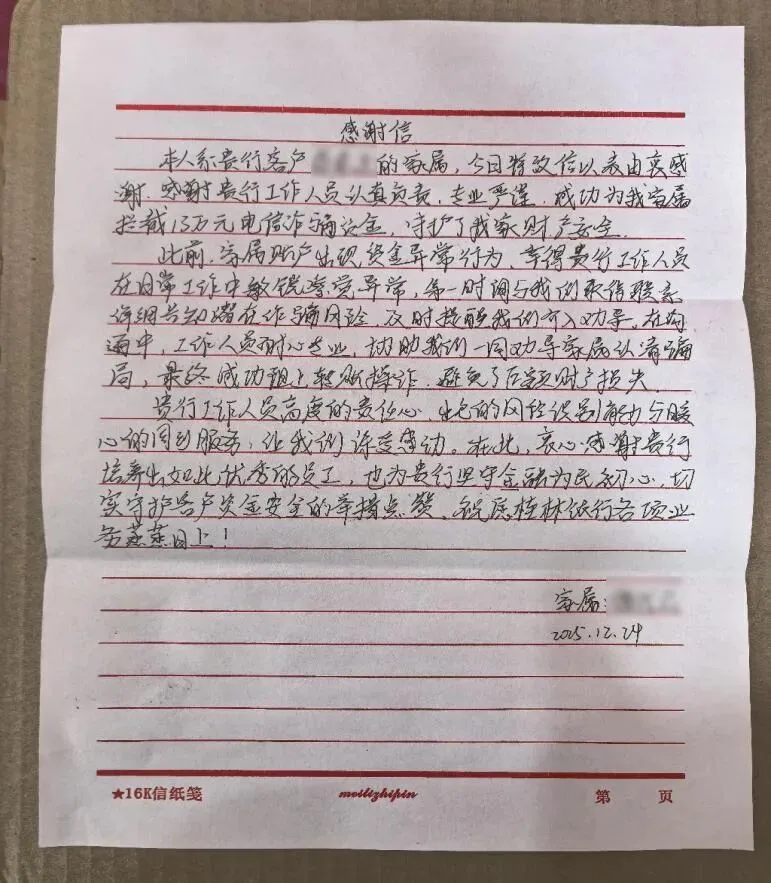 感谢信
本人系贵行客户 的家属,今日特致信以表由衷感
谢.感谢贵行工作人员认真负责,专业严谨.成功为我家属
拦截13万元电信诈骗资金,守护了我家财产安全.
此前,家属账户出现资金异常行为,幸得贵行工作人员
在日常工作中敏锐察觉异常,第一时间与我们取得联系
详细告知潜在诈骗风险,及时提醒我们介入劝导.在沟
通中,工作人员耐心专业,协助我们一同劝导家属认清骗
局,最终成功阻止转账操作.避免了巨额财产损失.
贵行工作人员高度的责任心,出色的风控识别能力与暖
心的周到服务,让我们深受感动。在此,衷心感谢贵行
培养出如此优秀的员工,也为贵行坚守金融为民初心,切
实守护客户资金安全的举措点赞.祝愿桂林银行各项业
务蒸蒸日上!
家属:
2025.12.24
★16K信纸笺 meilizhipin 第 页